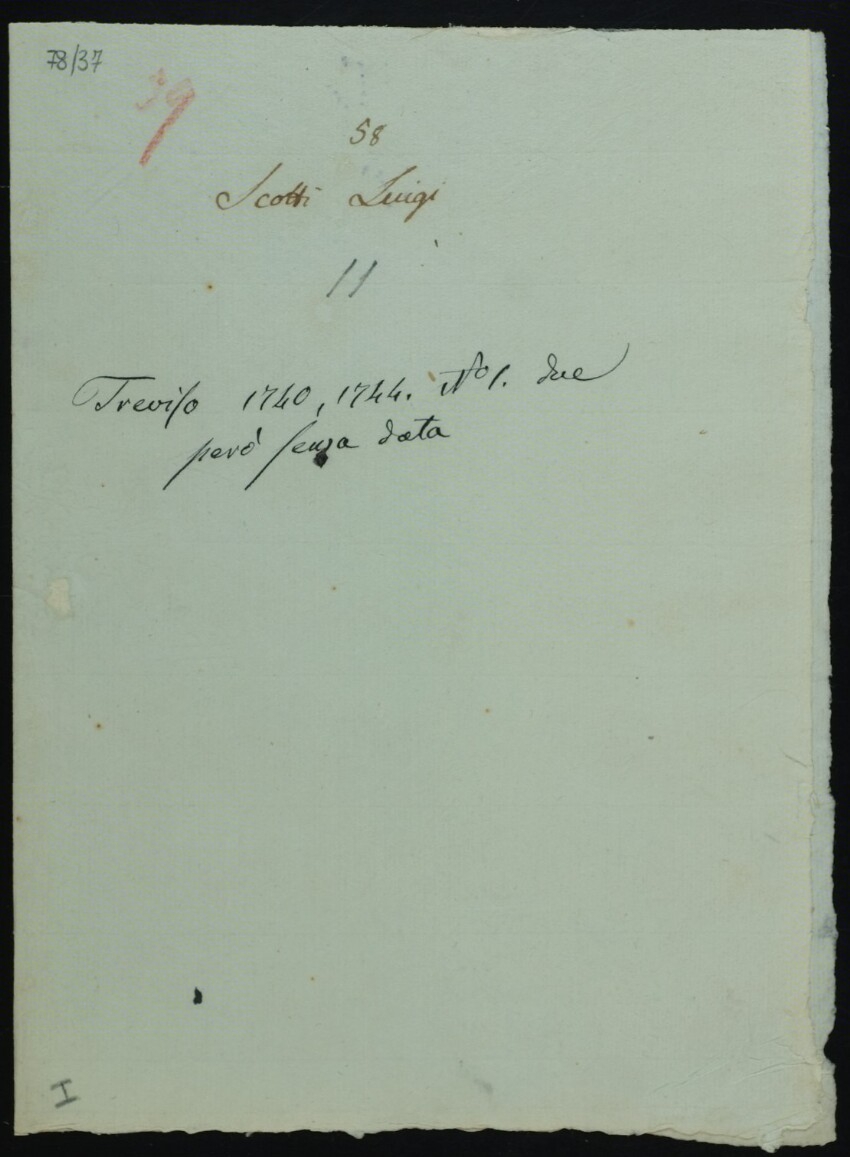 78/37
39
58
Scotti Luigi
11
Treviso 1740, 1744. No 1. due
però senza data
I